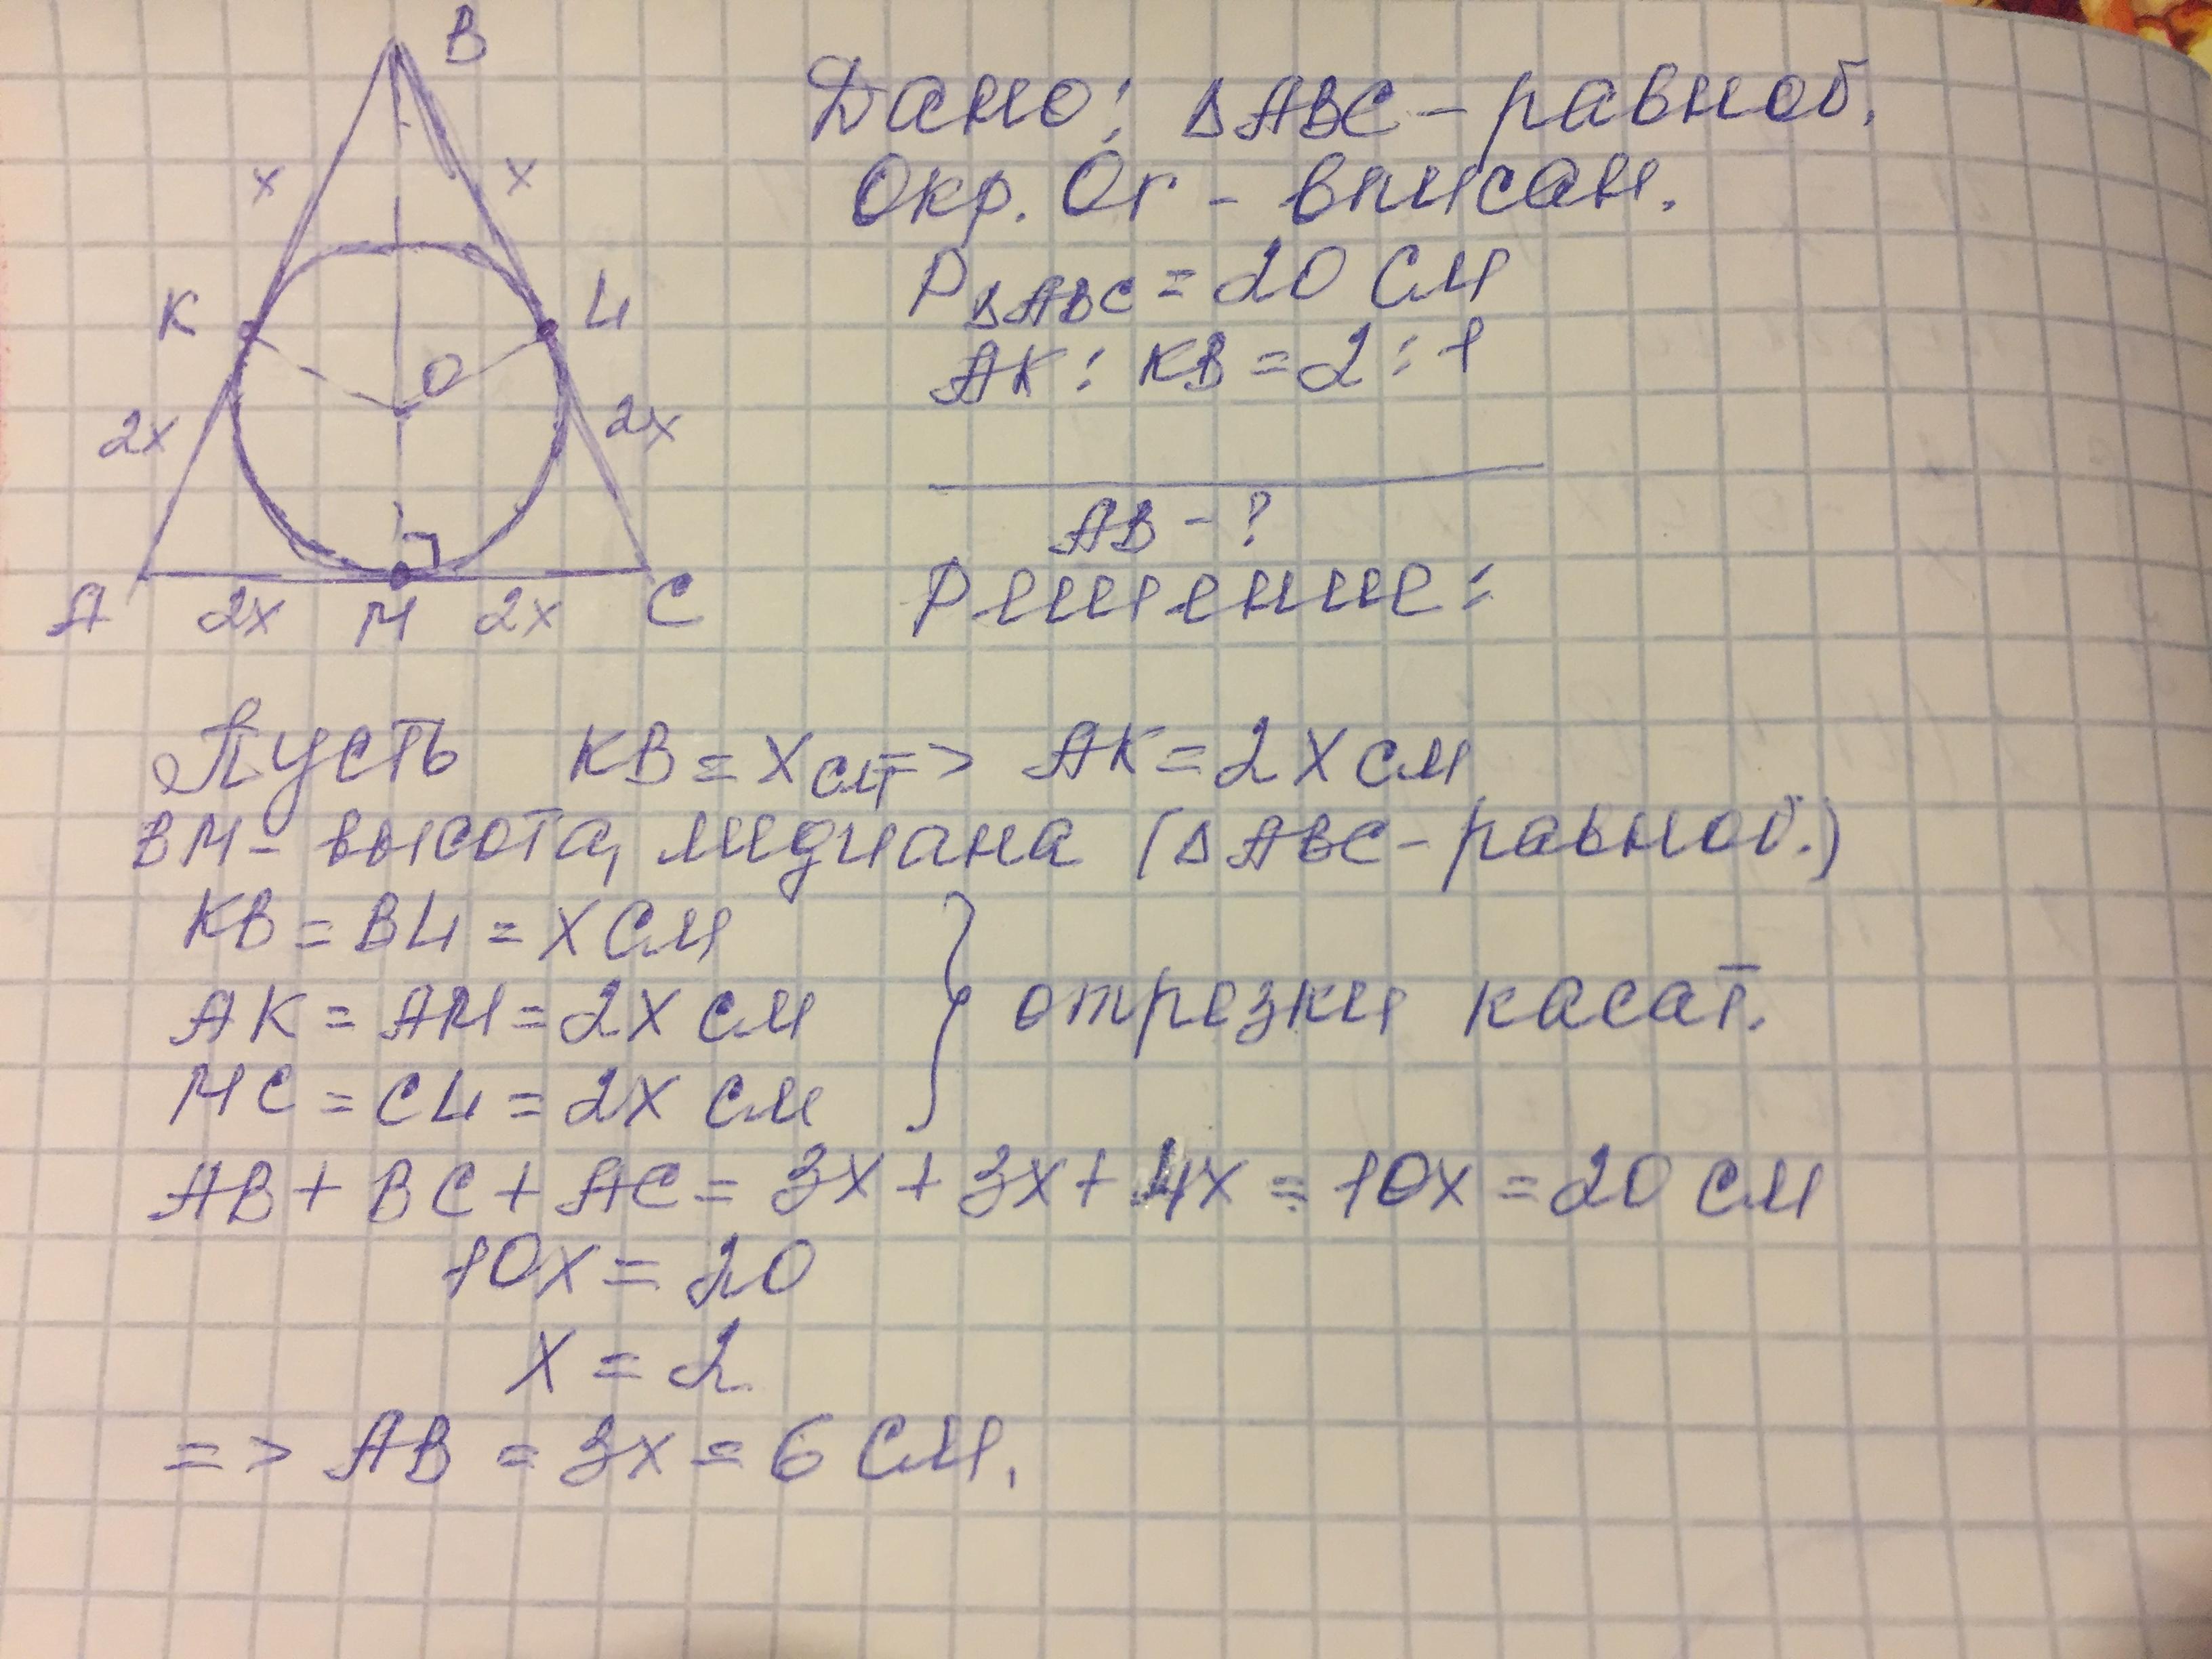 B
x x
K L1
O
2x 2x
A 2x M 2x C
Дано: ΔABC - равноб.
Окр. Or - вписан.
PΔABC = 20 см
AK : KB = 2 : 1
AB - ?
Решение:
Пусть KB = x см => AK = 2x см
BM - высота, медиана (ΔABC - равноб.)
KB = BL1 = x см
AK = AM = 2x см
MC = CL1 = 2x см
отрезки касат.
AB + BC + AC = 3x + 3x + 4x = 10x = 20 см
10x = 20
x = 2
=> AB = 3x = 6 см.